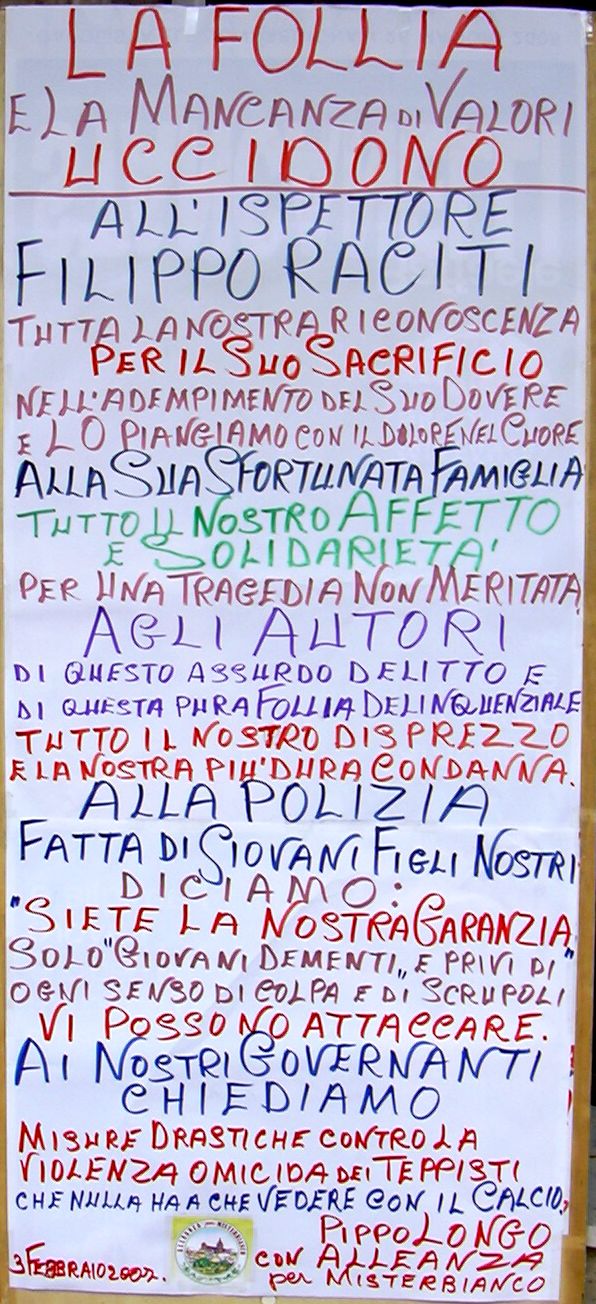 LA FOLLIA
E LA MANCANZA DI VALORI
UCCIDONO
ALL'ISPETTORE
FILIPPO RACITI
TUTTA LA NOSTRA RICONOSCENZA
PER IL SUO SACRIFICIO
NELL'ADEMPIMENTO DEL SUO DOVERE
E LO PIANGIAMO CON IL DOLORE NEL CUORE
ALLA SUA SFORTUNATA FAMIGLIA
TUTTO IL NOSTRO AFFETTO
E SOLIDARIETA'
PER UNA TRAGEDIA NON MERITATA
AGLI AUTORI
DI QUESTO ASSURDO DELITTO E
DI QUESTA PURA FOLLIA DELINQUENZIALE
TUTTO IL NOSTRO DISPREZZO
E LA NOSTRA PIU' DURA CONDANNA.
ALLA POLIZIA
FATTA DI GIOVANI FIGLI NOSTRI
DICIAMO:
"SIETE LA NOSTRA GARANZIA"
SOLO "GIOVANI DEMENTI,, E PRIVI DI
OGNI SENSO DI COLPA E DI SCRUPOLI
VI POSSONO ATTACCARE.
AI NOSTRI GOVERNANTI
CHIEDIAMO
MISURE DRASTICHE CONTRO LA
VIOLENZA OMICIDA DEI TEPPISTI
CHE NULLA HA A CHE VEDERE CON IL CALCIO,
PIPPO LONGO
CON ALLEANZA
per MISTERBIANCO
3 FEBBRAIO 2007.
ALLEANZA per MISTERBIANCO